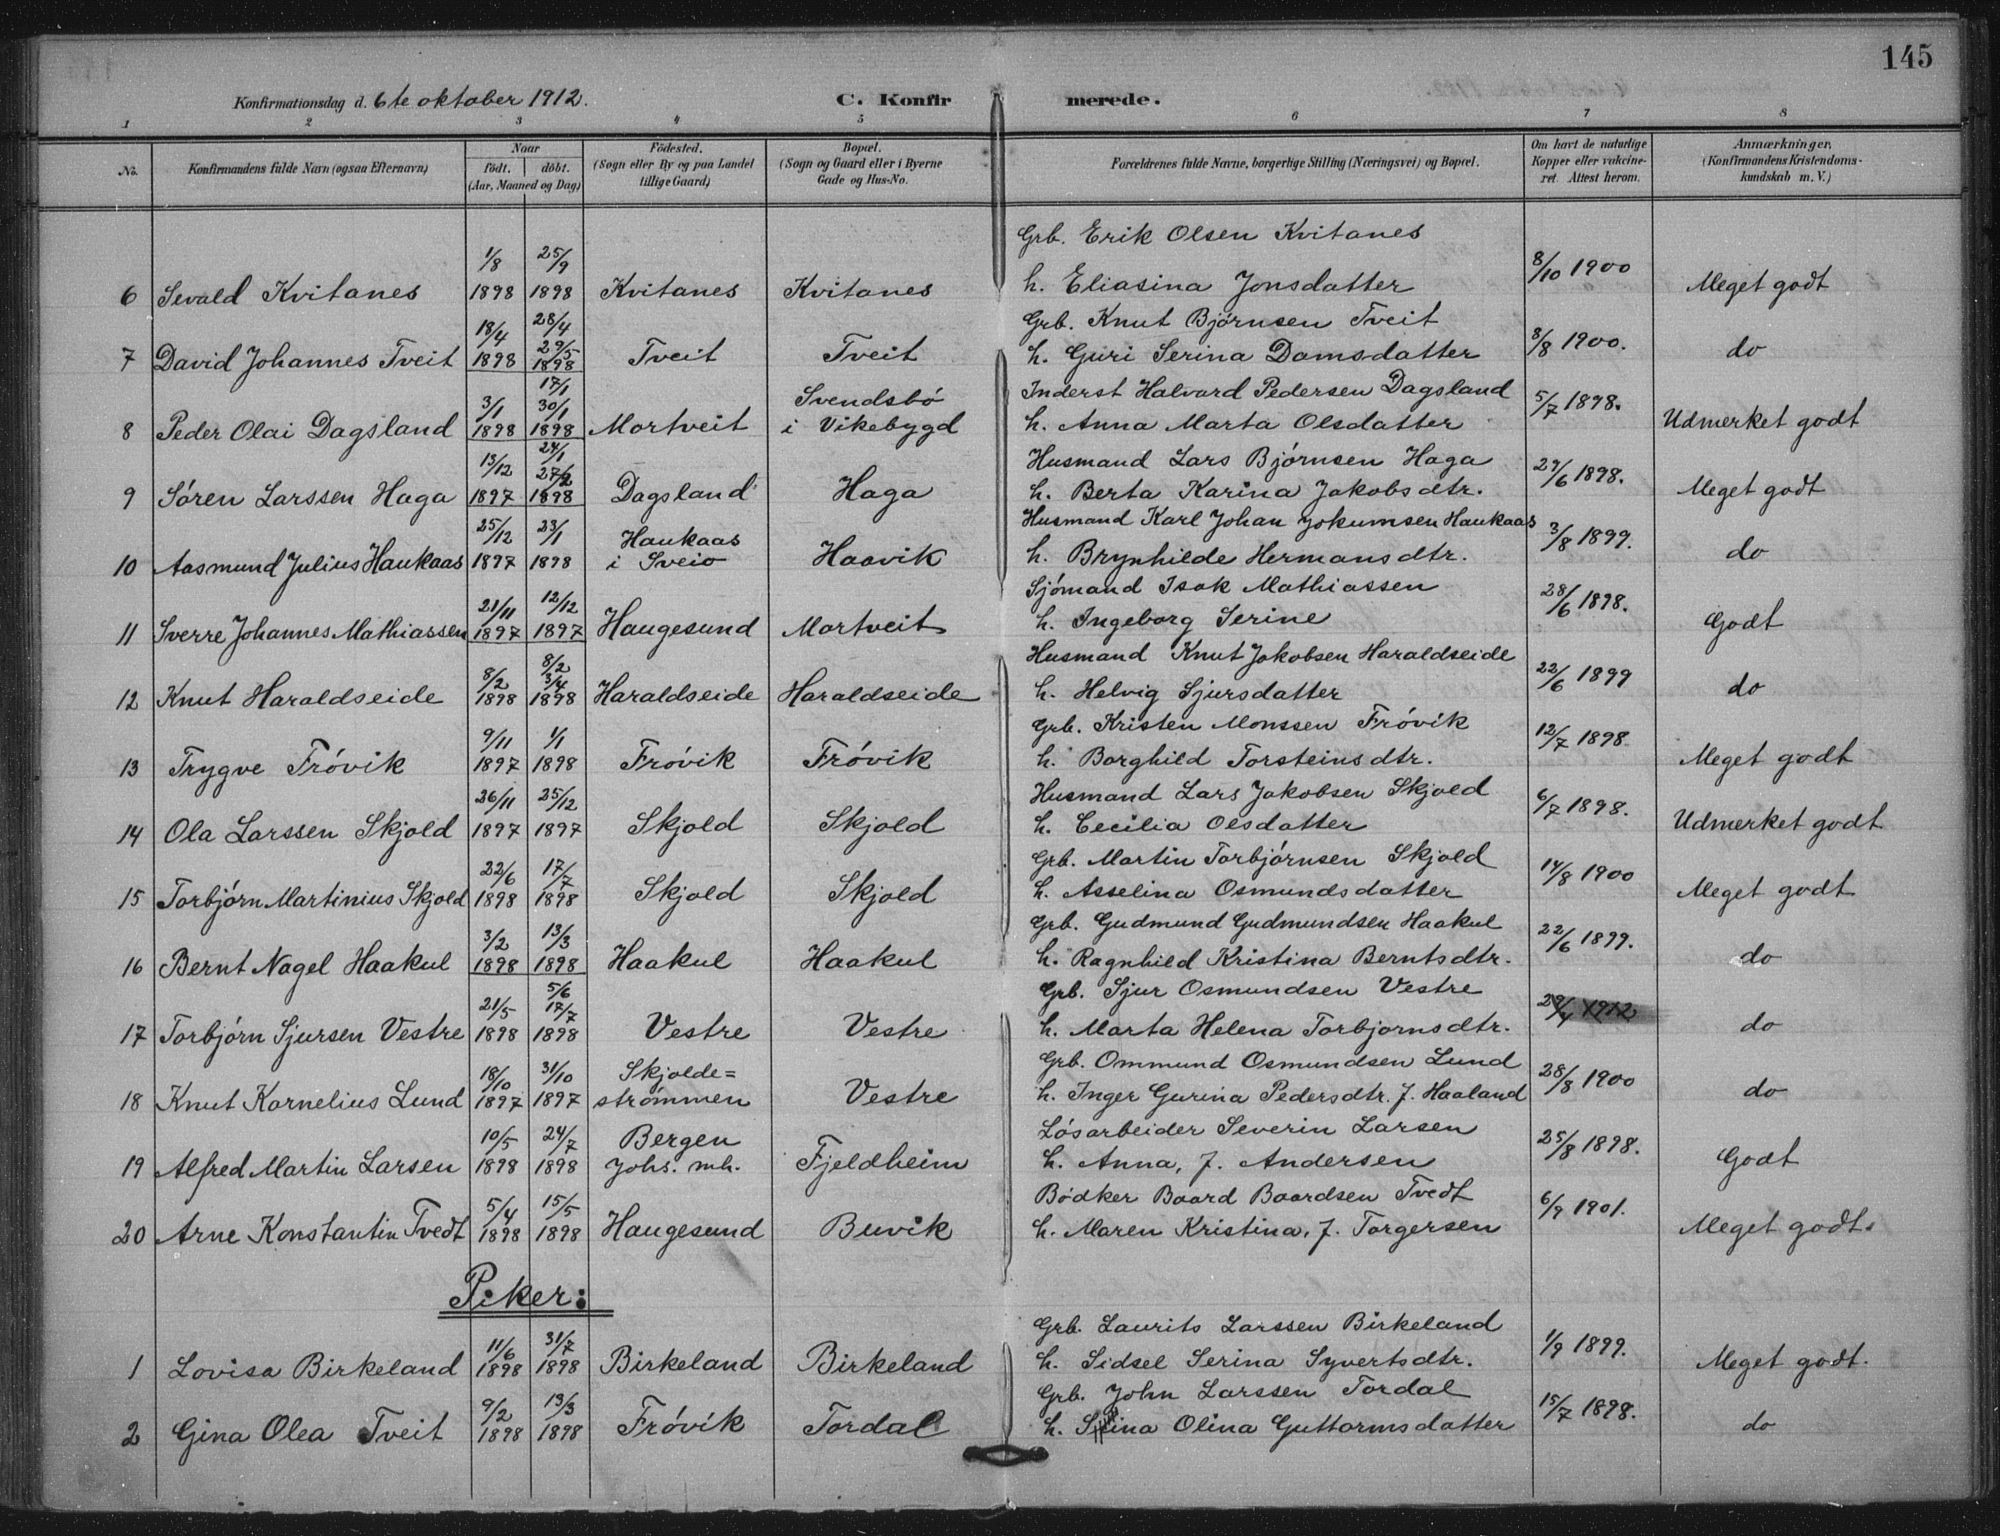 145
Konfirmationsdag d. 6te oktober 1912. C. Konfirmerede.
1 2 3 4 5 6 7 8
No. Konfirmandens fulde Navn (ogsaa Efternavn) Naar født. døbt. (Aar, Maaned og Dag) Fødested. (Sogn eller By og paa Landet tillige Gaard) Bopæl. (Sogn og Gaard eller i Byerne Gade og Hus-No. Forældrenes fulde Navne, borgerlige Stilling (Næringsvei) og Bopæl. Om havt de naturlige Kopper eller vakcineret. Attest herom. Anmærkninger. (Konfirmandens Kristendomskundskab m. V.)
1/8 25/9 Grb. Erik Olsen Kvitanes
6 Sevald Kvitanes 1898 1898 Kvitanes Kvitanes h. Eliasina Jonsdatter 8/10 1900 Meget godt
18/4 28/4 29/5 Grb. Knut Bjørnsen Tveit
7 David Johannes Tveit 1898 1898 Tveit Tveit h. Guri Serina Damsdatter 8/8 1900. do
3/1 17/1 30/1 Svendsbø Inderst Halvard Pedersen Dagsland
8 Peder Olai Dagsland 1898 1898 Mortveit i Vikebygd h. Anna Marta Olsdatter 5/7 1898. Udmerket godt
13/12 24/1 27/2 Husmand Lars Bjørnsen Haga
9 Søren Larssen Haga 1897 1898 Dagsland Haga h. Berta Karina Jakobsdtr. 29/6 1898. Meget godt
25/12 23/1 Haukaas Husmand Karl Johan Jokumsen Haukaas
10 Aasmund Julius Haukaas 1897 1898 i Sveio Haavik h. Brynhilde Hermansdtr. 3/8 1899. do
21/11 12/12 Sjømand Isak Mathiassen
11 Sverre Johannes Mathiassen 1897 1897 Haugesund Mortveit h. Ingeborg Serine 28/6 1898. Godt
8/2 8/2 3/4 Husmand Knut Jakobsen Haraldseide
12 Knut Haraldseide 1898 1898 Haraldseide Haraldseide h. Helvig Sjursdatter 22/6 1899 do
9/11 1/1 Grb. Kristen Monssen Frøvik
13 Trygve Frøvik 1897 1898 Frøvik Frøvik h. Borghild Torsteinsdtr. 12/7 1898 Meget godt
26/11 25/12 Husmand Lars Jakobsen Skjold
14 Ola Larssen Skjold 1897 1897 Skjold Skjold h. Cecilia Olsdatter 6/7 1898. Udmerket godt
22/6 17/7 Grb. Martin Torbjørnsen Skjold
15 Torbjørn Martinius Skjold 1898 1898 Skjold Skjold h. Asselina Osmundsdatter 14/8 1900 Meget godt
3/2 13/3 Grb. Gudmund Gudmundsen Haakul
16 Bernt Nagel Haakul 1898 1898 Haakul Haakul h. Ragnhild Kristina Berntsdtr. 22/6 1899. do
21/5 5/6 17/7 Grb. Sjur Osmundsen Vestre
17 Torbjørn Sjursen Vestre 1898 1898 Vestre Vestre h. Marta Helena Torbjornsdtr. 29/4 1912 do
18/10 31/10 Skjolde= Grb. Ommund Osmundsen Lund
18 Knut Kornelius Lund 1897 1897 strømmen Vestre h. Inger Gurina Pedersdtr. f. Haaland 28/8 1900 do
10/5 24/7 Bergen Løsarbeider Severin Larsen
19 Alfred Martin Larsen 1898 1898 Johs. mh. Fjeldheim h. Anna, f. Andersen 25/8 1898. Godt
5/4 15/5 Bødker Baard Baardsen Tvedt
20 Arne Konstantin Tvedt 1898 1898 Haugesund Buvik h. Maren Kristina, f. Torgersen 6/9 1901. Meget godt.
Piker:
11/6 31/7 Grb. Laurits Larssen Birkeland
1 Lovisa Birkeland 1898 1898 Birkeland Birkeland h. Sidsel Serina Syvertsdtr. 1/9 1899. Meget godt.
9/2 13/3 Grb. John Larssen Tordal
2 Gina Olea Tveit 1898 1898 Frøvik Tordal h. Olina Guttormsdatter 15/7 1898. do